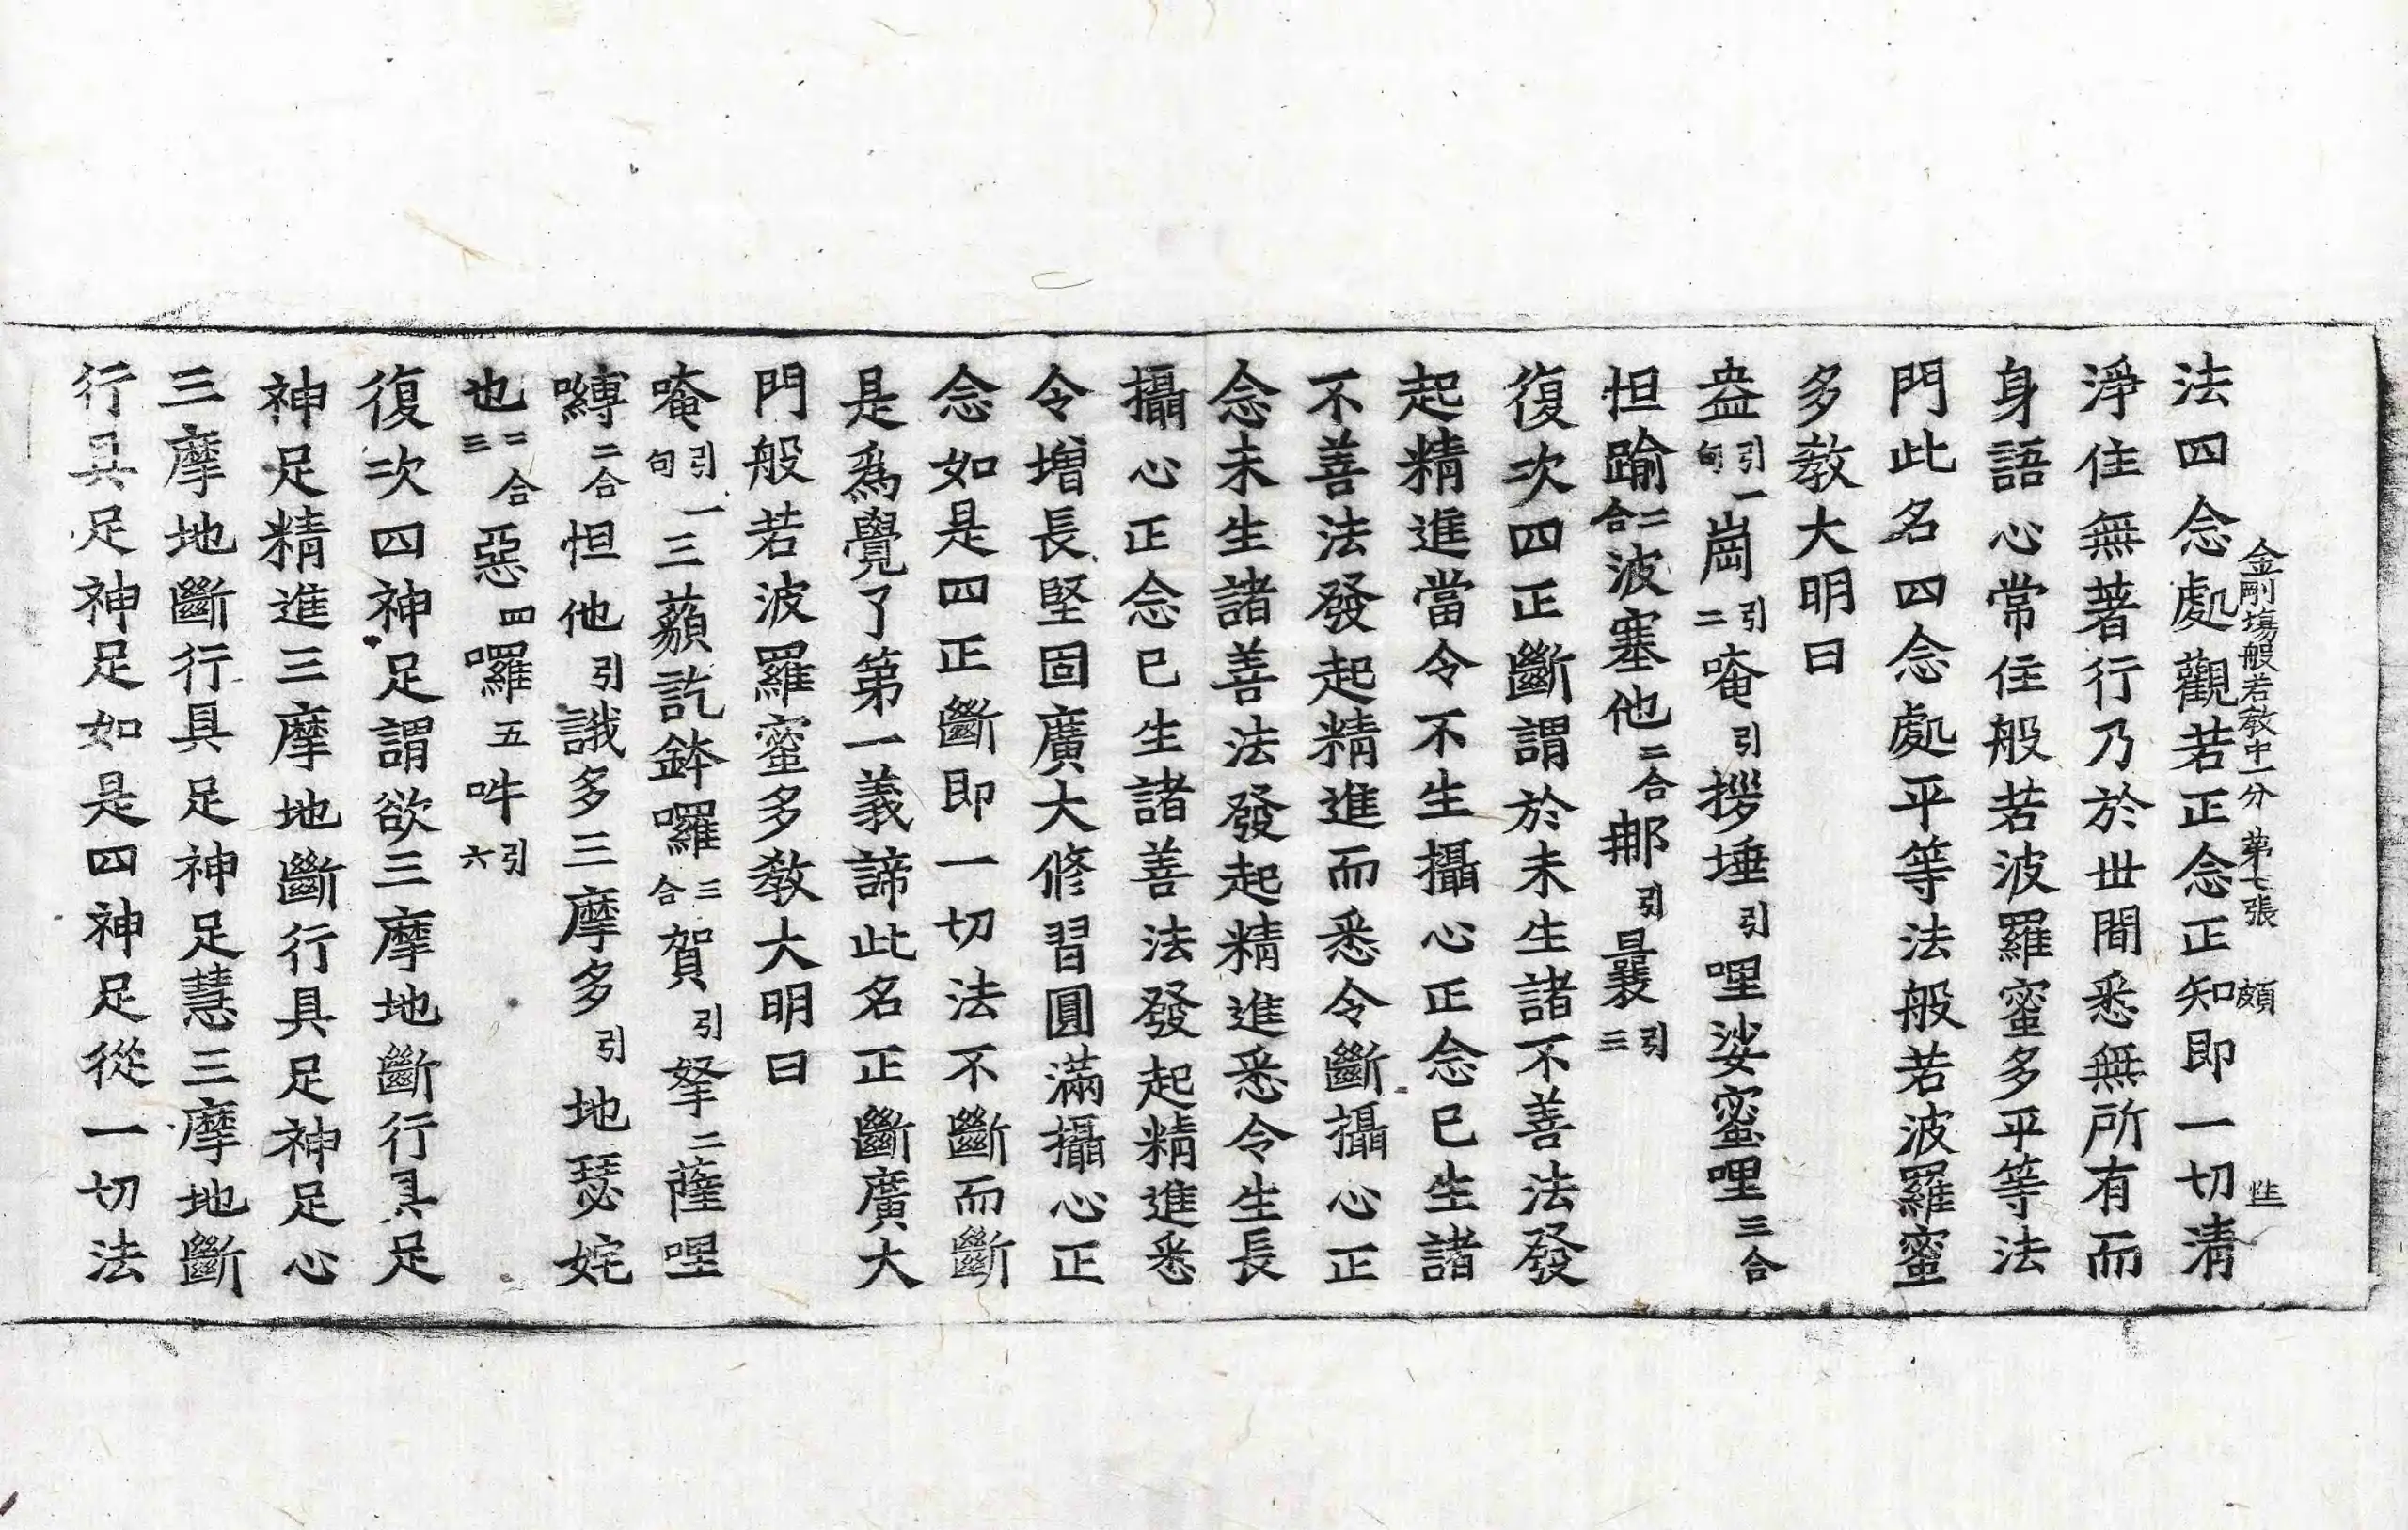 金剛場般若教中一分 第七張 頗
法四念處觀若正念正知即一切清
淨住無著行乃於世間悉無所有而
身語心常住般若波羅蜜多平等法
門此名四念處平等法般若波羅蜜
多教大明曰
盎引一句崗引二唵引拶埵引哩娑蜜哩三合
怛踰二合波塞他二合那引曩引三
復次四正斷謂於未生諸不善法發
起精進當令不生攝心正念已生諸
不善法發起精進而悉令斷攝心正
念未生諸善法發起精進悉令生長
攝心正念已生諸善法發起精進悉
令增長堅固廣大修習圓滿攝心正
念如是四正斷即一切法不斷而斷
是為覺了第一義諦此名正斷廣大
門般若波羅蜜多教大明曰
唵引一句三藐訖鉢囉三合賀引拏二薩哩
嚩二合怛他引誐多三摩多引地瑟姹
也二合三惡四囉五吽引六
復次四神足謂欲三摩地斷行具足
神足精進三摩地斷行具足神足心
三摩地斷行具足神足慧三摩地斷
行具足神足如是四神足從一切法